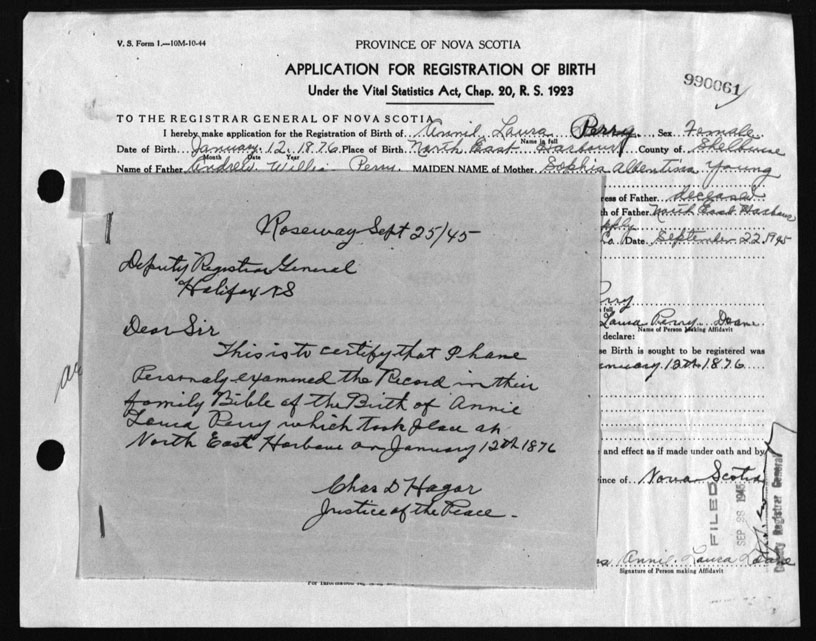 V. S. Form 1.—10M-10-44
PROVINCE OF NOVA SCOTIA
APPLICATION FOR REGISTRATION OF BIRTH
Under the Vital Statistics Act, Chap. 20, R. S. 1923
990061
TO THE REGISTRAR GENERAL OF NOVA SCOTIA
I hereby make application for the Registration of Birth of Annie Laura Perry Sex Female
Name in full
Date of Birth January 12, 1876 Place of Birth North East Harbour County of Shelburne
Month Date Year
Name of Father Andrew William Perry MAIDEN NAME of Mother Sophia Albentina Young
ess of Father deceased
h of Father North East Harbour
Date September 22, 1945
Laura Perry Doane
Name of Person Making Affidavit
declare:
se Birth is sought to be registered was
January 12th 1876
and effect as if made under oath and by
ince of Nova Scotia
FILED
SEP 28 1945
Deputy Registrar General
Annie Laura Doane
Signature of Person making Affidavit
Roseway Sept 25/45
Deputy Registrar General
Halifax NS
Dear Sir
This is to certify that I have
Personaly examined the Record in their
family Bible of the Birth of Annie
Laura Perry which took place at
North East Harbour on January 12th 1876
Chas D Hagar
Justice of the Peace.